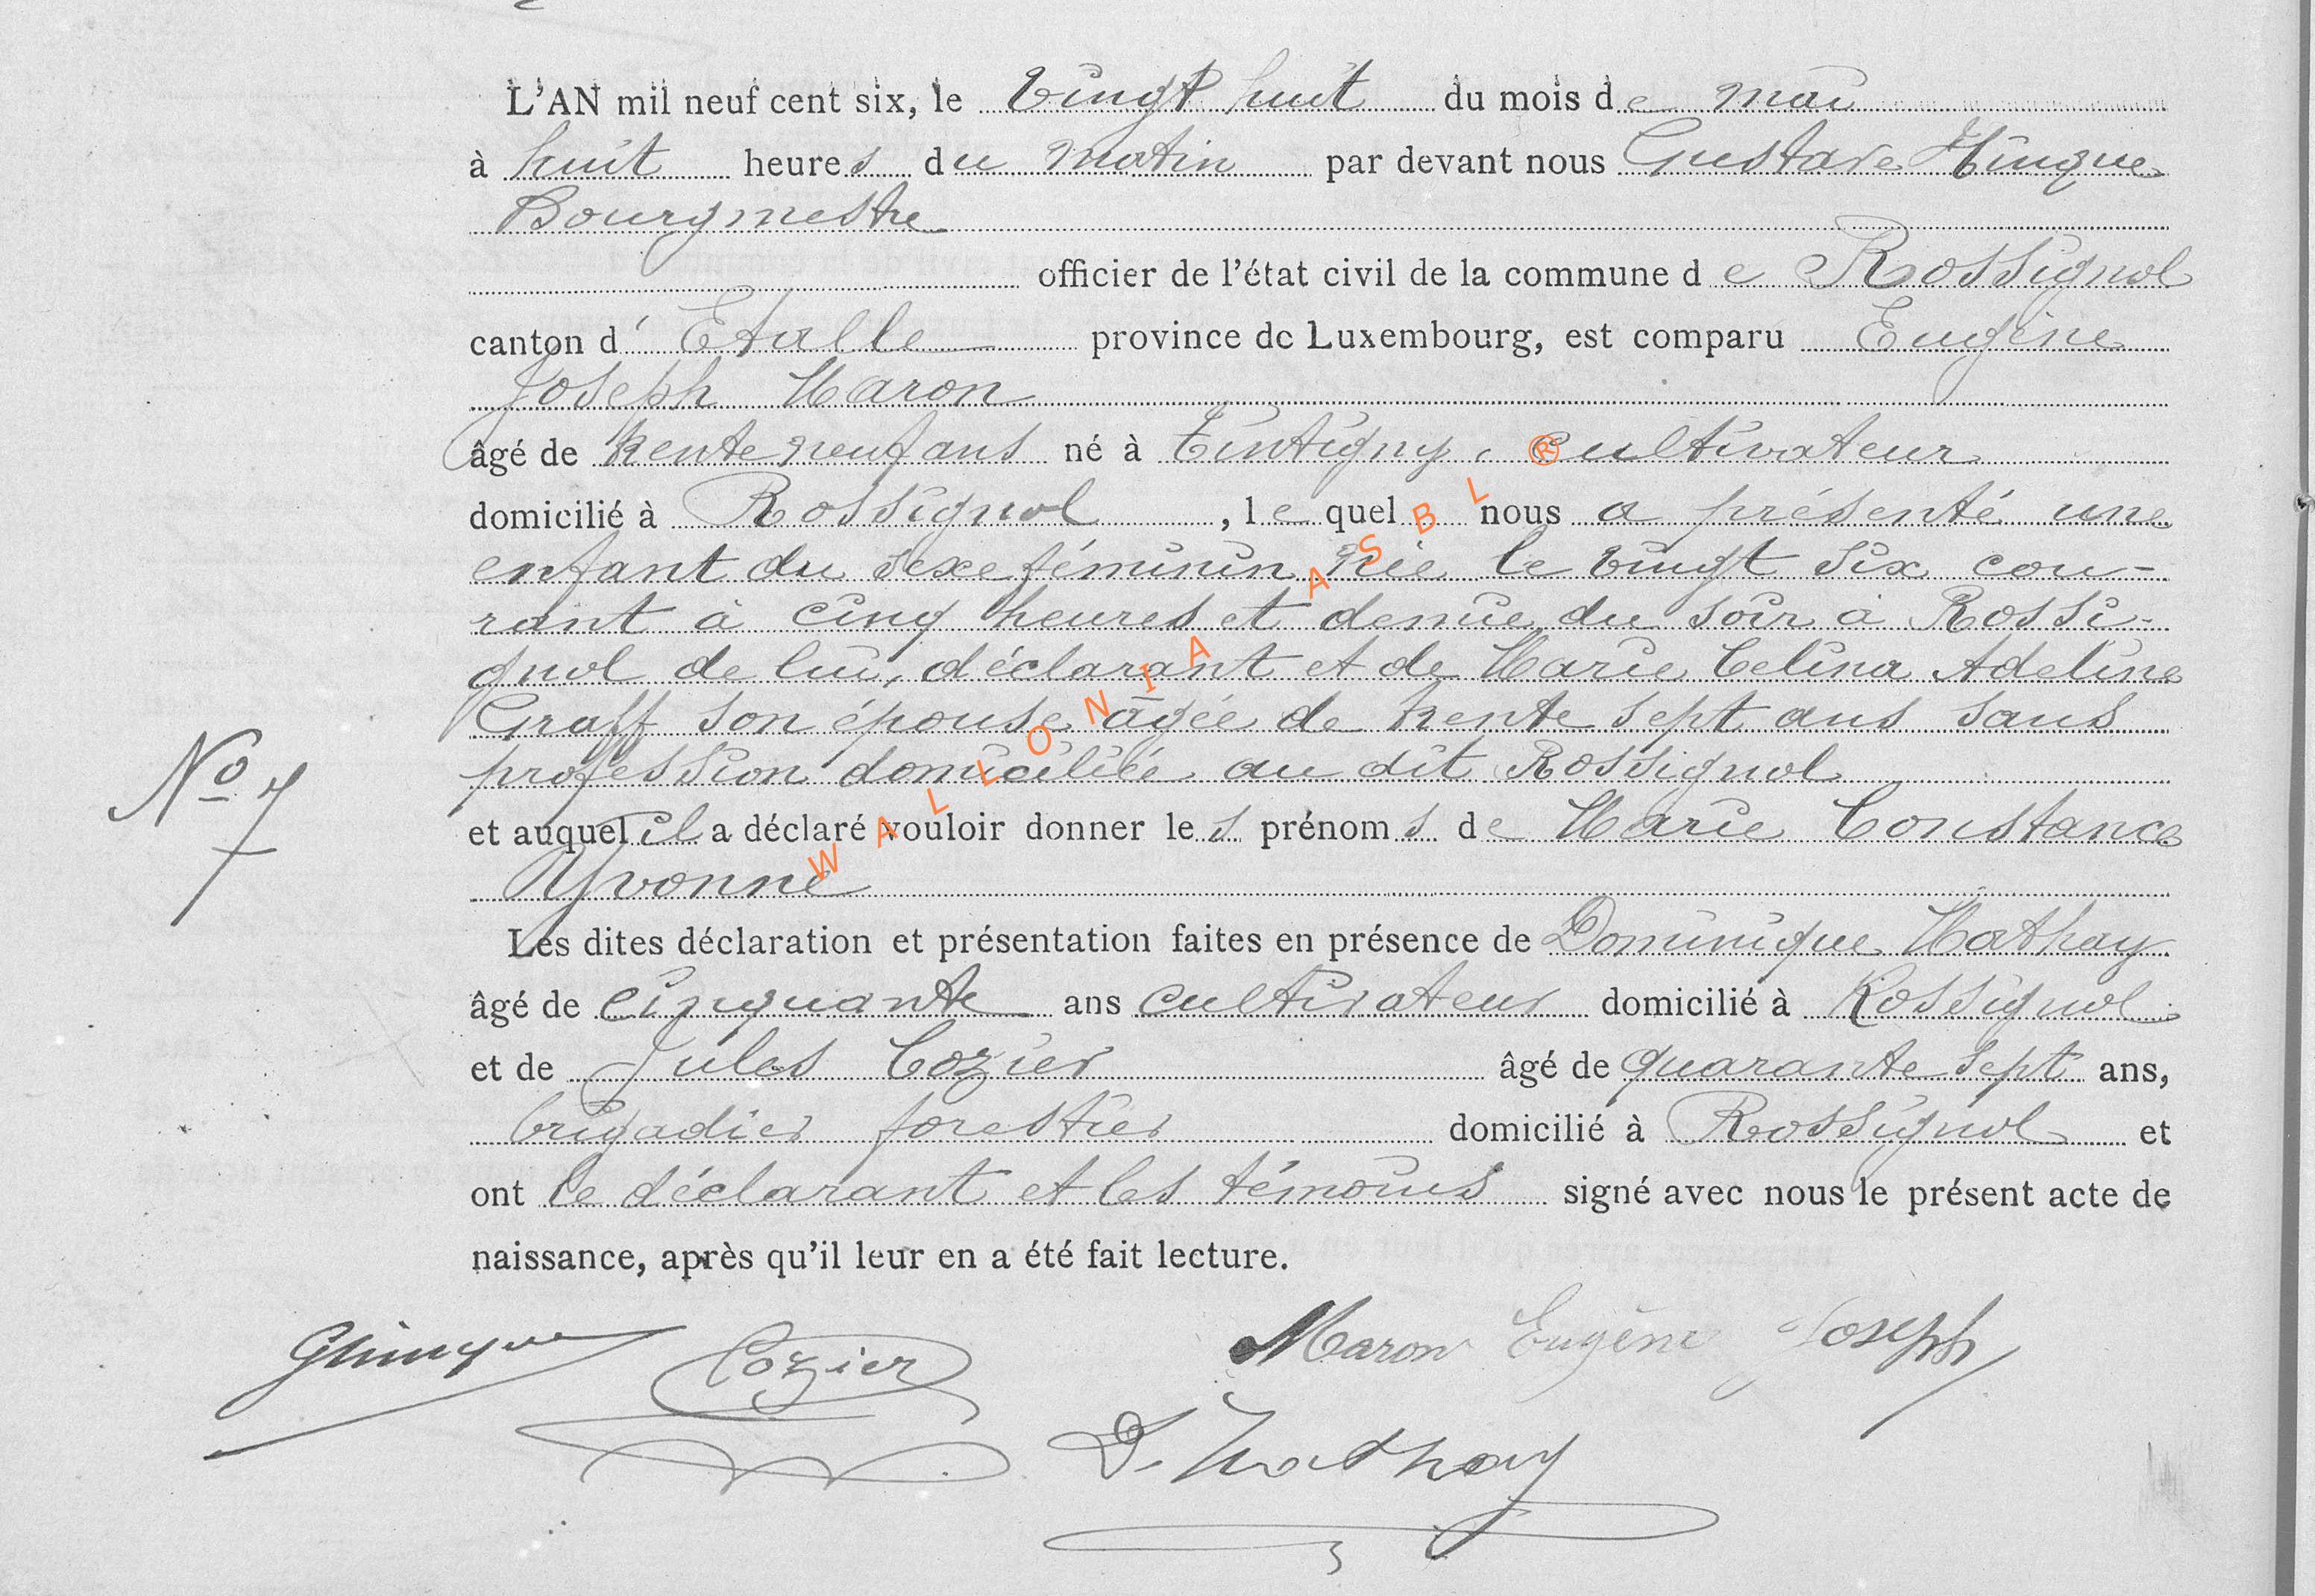 L'AN mil neuf cent six, le vingt huit du mois de mai
à huit heures du matin par devant nous Gustave Hinque
Bourgmestre
officier de l'état civil de la commune de Rossignol
canton d'Etalle province de Luxembourg, est comparu Eugène
Joseph Maron
âgé de trente neuf ans né à Tintigny, cultivateur
domicilié à Rossignol, lequel nous a présenté une
enfant du sexe féminin née le vingt six cou-
rant à cinq heures et demie du soir à Rossi-
gnol de lui, déclarant et de Marie Celina Adeline
Graff son épouse âgée de trente sept ans sans
profession domiciliée au dit Rossignol
No 7
et auquel il a déclaré vouloir donner les prénoms de Marie Constance
Yvonne
Les dites déclaration et présentation faites en présence de Dominique Mathay
âgé de cinquante ans cultivateur domicilié à Rossignol
et de Jules Cozier âgé de quarante sept ans,
brigadier forestier domicilié à Rossignol et
ont le déclarant et les témoins signé avec nous le présent acte de
naissance, après qu'il leur en a été fait lecture.
GHinque Cozier Maron Eugène Joseph
D. Mathay
WALLONIA ASBL ®